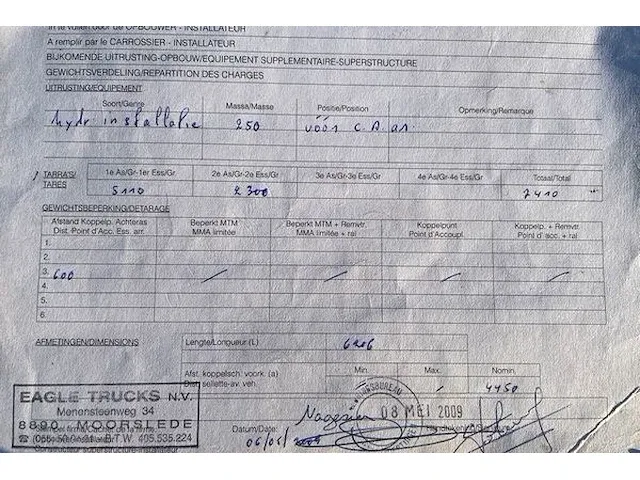 In te vullen door de OPBOUWER - INSTALLATEUR
A remplir par le CARROSSIER - INSTALLATEUR
BIJKOMENDE UITRUSTING-OPBOUW/EQUIPEMENT SUPPLEMENTAIRE-SUPERSTRUCTURE
GEWICHTSVERDELING/REPARTITION DES CHARGES
UITRUSTING/EQUIPEMENT
Soort/Genre Massa/Masse Positie/Position Opmerking/Remarque
hydr. installatie 250 vóór C.A. as
TARRA'S/ 1e As/Gr-1er Ess/Gr 2e As/Gr-2e Ess/Gr 3e As/Gr-3e Ess/Gr 4e As/Gr-4e Ess/Gr Totaal/Total
TARES 5110 2300 7410
GEWICHTSBEPERKING/DETARAGE
Afstand Koppelp. Achteras Beperkt MTM Beperkt MTM + Remvtr. Koppelpunt Koppelp. + Remvtr.
Dist. Point d'Acc. Ess. arr. MMA limitée MMA limitée + ral Point d'Accoupl. Point d'acc. + ral
1.
2.
3. 600
4.
5.
6.
AFMETINGEN/DIMENSIONS Lengte/Longueur (L) 6206
Min. Max. Nomin.
Afst. koppelsch. voork. (a)
Dist sellette-av. veh. 4450
EAGLE TRUCKS N.V.
Menensteenweg 34
8890 MOORSLEDE
B.T.W. 405.535.224
08 MEI 2009
Datum/Date: 06/05/